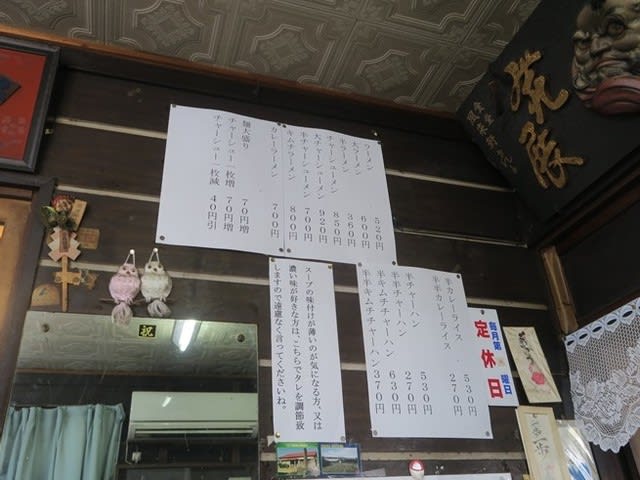 ラーメン 520円
大ラーメン 600円
半ラーメン 360円
チャーシューメン 850円
大チャーシューメン 920円
半チャーシューメン 700円
キムチラーメン 800円
カレーラーメン 700円
麺大盛り 70円増
チャーシュー一枚増 70円増
チャーシュー一枚減 40円引
半カレーライス 530円
半半カレーライス 270円
半チャーハン 530円
半半チャーハン 270円
半キムチチャーハン 630円
半半キムチチャーハン 370円
スープの味付けが薄いのが気になる方、又は
濃い味が好きな方は、こちらでタレを調節致
しますので遠慮なく言ってくださいね。
毎月第 曜日
定休日
祝